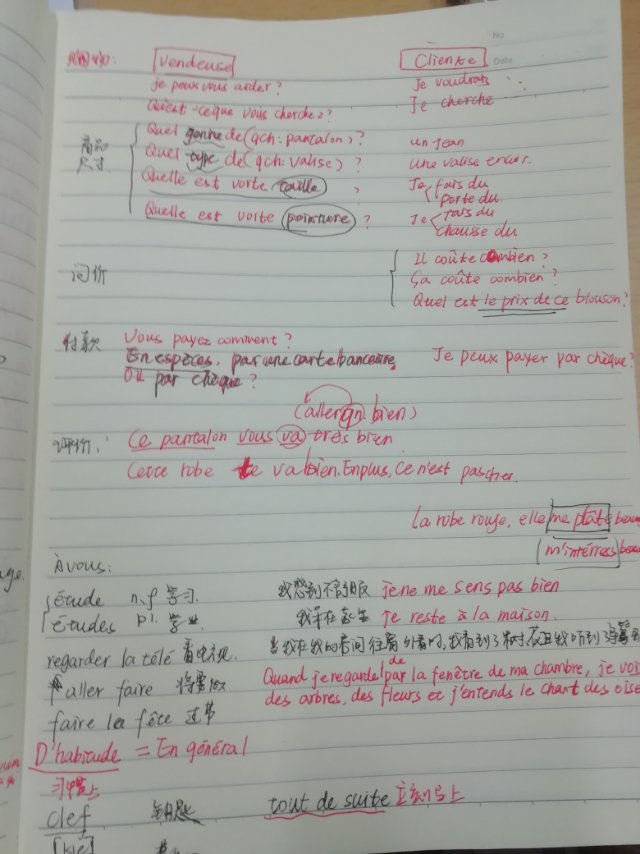 No.
Date
购物: Vendeuse Cliente
je peux vous aider? Je voudrais...
Qu'est-ce que vous cherchez? Je cherche
Quel genre de (qch: pantalon)? un jean
商品
尺寸
Quel type de (qch: valise)? une valise
Quelle est votre taille, Je fais du
porte du
Quelle est votre pointure? Je fais du
chausse du
Il coûte combien?
问价 Ça coûte combien?
Quel est le prix de ce blouson?
付款 Vous payez comment?
En espèces, par une carte bancaire, Je peux payer par chèque?
ou par chèque?
(aller qn. bien)
评价: Ce pantalon vous va très bien
Cette robe te va bien. En plus, ce n'est pas cher.
la robe rouge, elle me plaît
(m'intéress
À vous:
étude n.f 学习. 我感到不舒服 je ne me sens pas bien
études pl. 学业 je reste à la maison.
regarder la télé 看电视.
aller faire 将要做 Quand je regarde de par la fenêtre de ma chambre, je voi
des arbres, des fleurs et j'entends le chant des oise
faire la fête 过节
D'habitude = En général
习惯上
clef 钥匙 tout de suite 立刻马上
[kle]